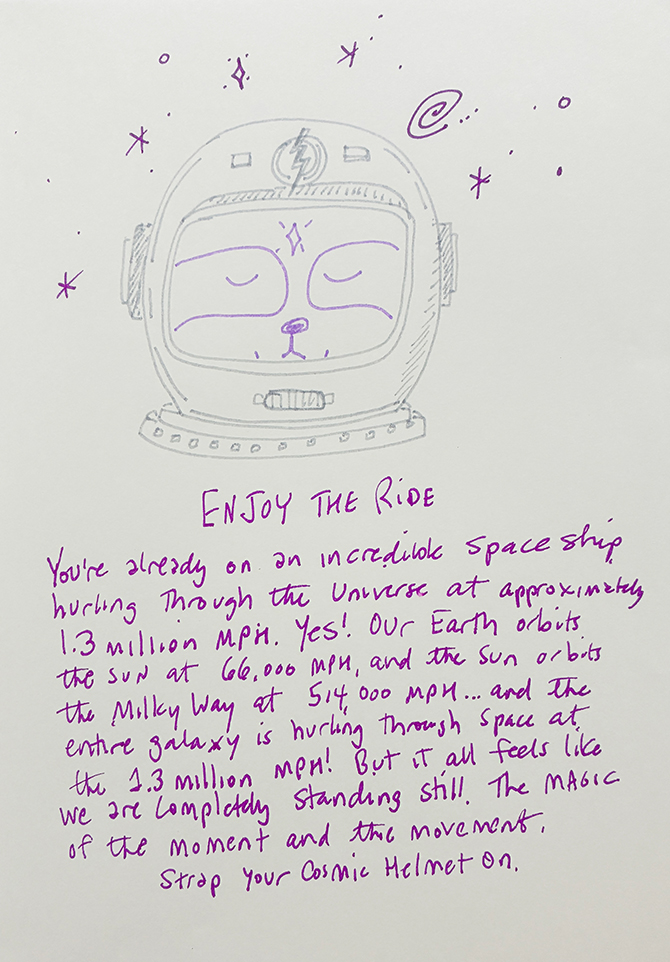 ENJOY THE RIDE
You're already on an incredible space ship
hurling Through the Universe at approximately
1.3 million MPH. Yes! Our Earth orbits
the Sun at 66,000 MPH, and the Sun orbits
the Milky Way at 514,000 MPH... and the
entire galaxy is hurling through space at
the 1.3 million MPH! But it all feels like
we are completely standing still. The MAGIC
of the moment and the movement.
Strap Your Cosmic Helmet On.